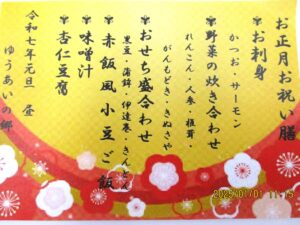 お正月お祝い膳
✾お刺身
かつお・サーモン
✾野菜の炊き合わせ
れんこん・人参・椎茸・
がんもどき・きぬさや
✾おせち盛合わせ
黒豆・蒲鉾・伊達巻・きんとん
✾赤飯風小豆ご飯
✾味噌汁
✾杏仁豆腐
令和七年元旦 昼
ゆうあいの郷
2025/01/01 11:15